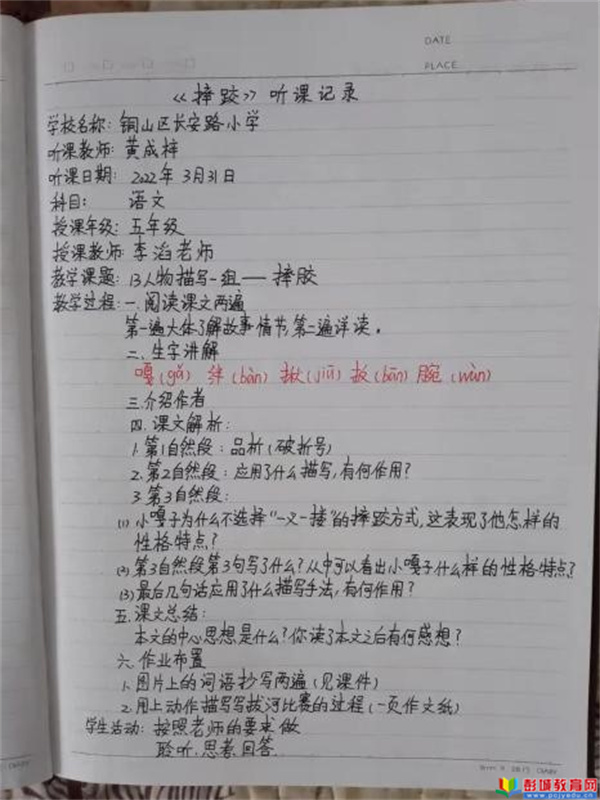 DATE
PLACE
《摔跤》听课记录
学校名称：铜山区长安路小学
听课教师：黄成梓
听课日期：2022年3月31日
科目：语文
授课年级：五年级
授课教师：李滔老师
教学课题：13人物描写一组——摔胶
教学过程：一.阅读课文两遍
第一遍大体了解故事情节,第二遍详读。
二.生字讲解
嘎(gǎ) 绊(bàn) 揪(jiū) 扳(bān) 腕(wàn)
三.介绍作者
四.课文解析：
1.第1自然段：品析(破折号)
2.第2自然段：应用了什么描写,有何作用？
3.第3自然段：
(1)小嘎子为什么不选择"一叉一搂"的摔跤方式,这表现了他怎样的
性格特点？
(2)第3自然段第3句写了什么？从中可以看出小嘎子什么样的性格特点？
(3)最后几句话应用了什么描写手法,有何作用？
五.课文总结：
本文的中心思想是什么？你读了本文之后有何感想？
六.作业布置
1.图片上的词语抄写两遍(见课件)
2.用上动作描写写拔河比赛的过程(一页作文纸)
学生活动：按照老师的要求做
聆听.思考.回答.
彭城教育网
www.pcjyedu.cn